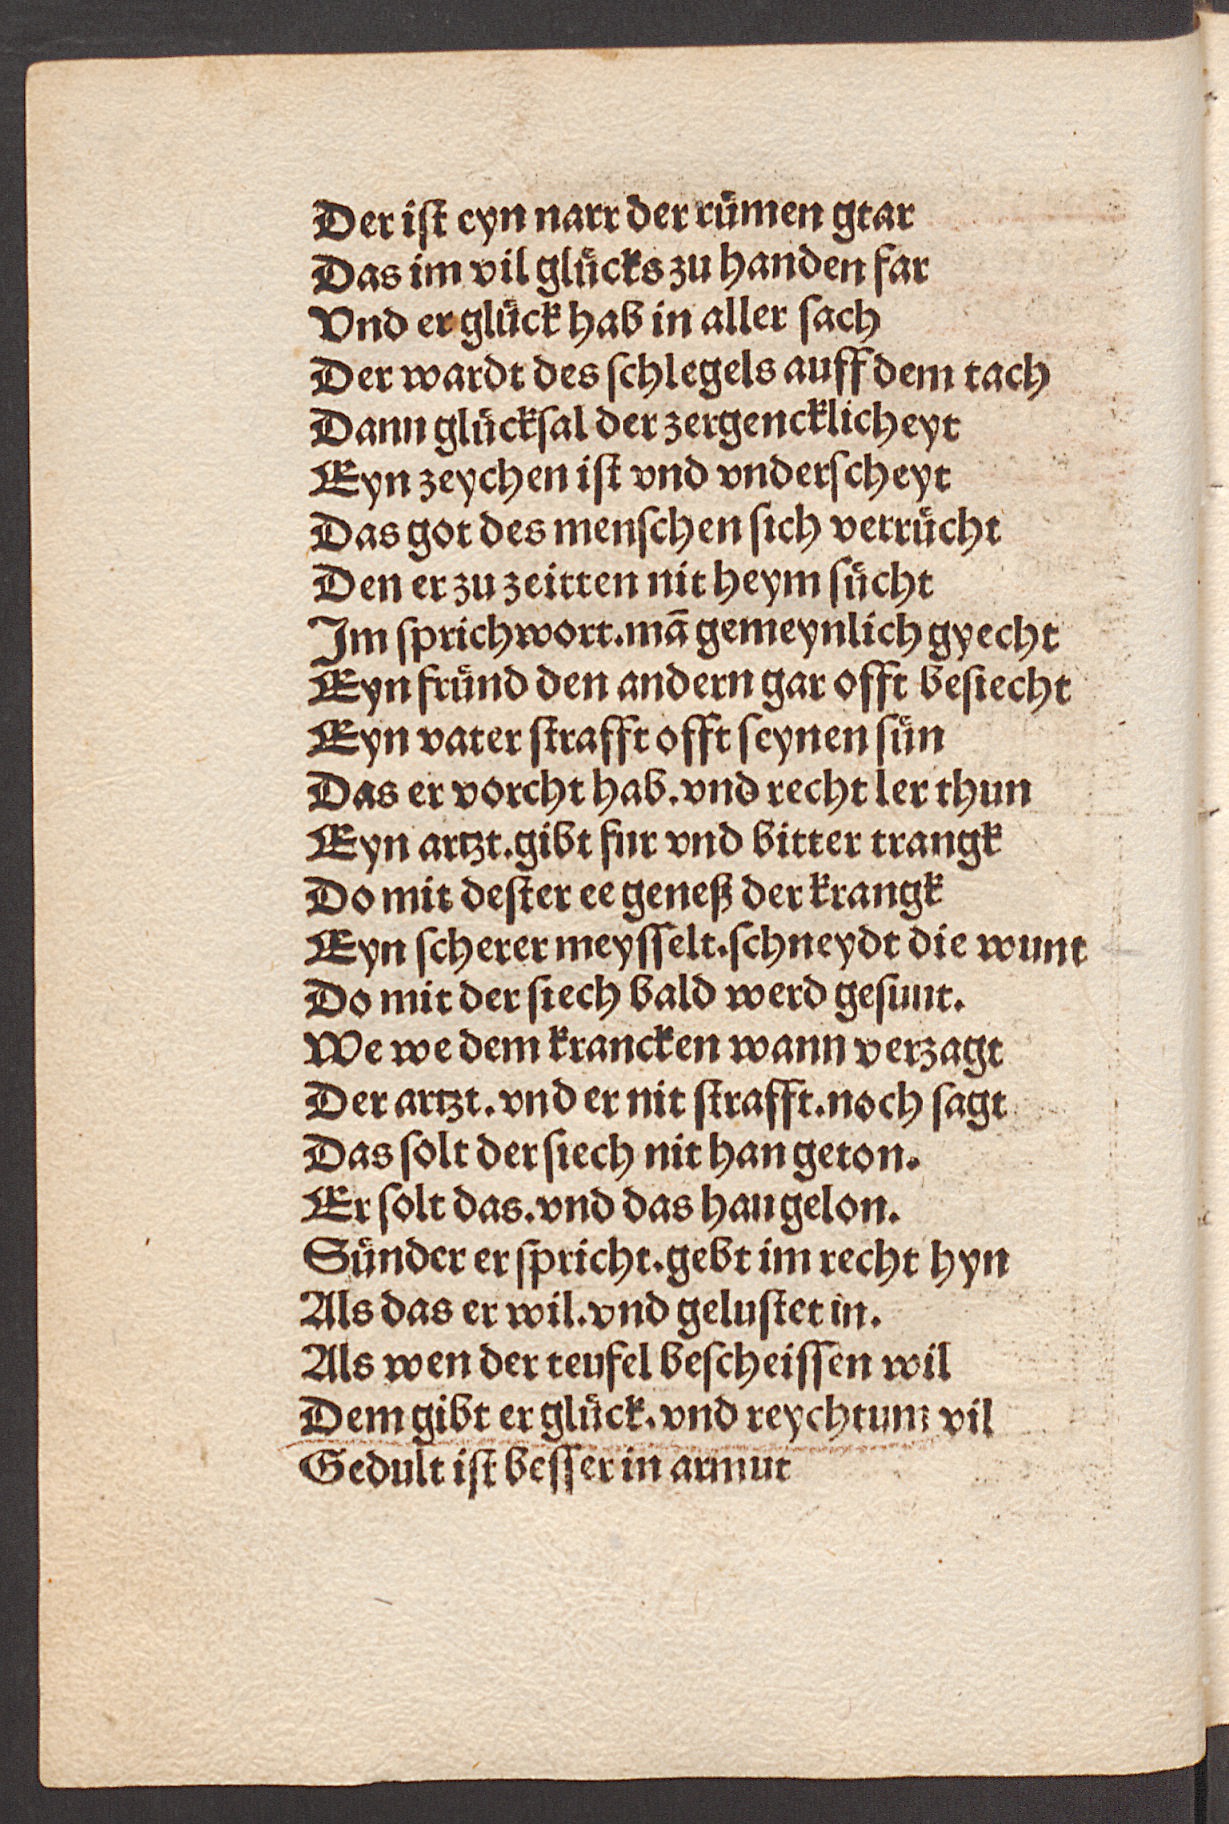 Der iſt eyn narr der rümen gtar
Das im vil glücks zu handen far
Vnd er glück hab in aller ſach
Der wardt des ſchlegels auff dem tach
Dann glückſal der zergencklicheyt
Eyn zeychen iſt vnd vnderſcheyt
Das got des menſchen ſich verrücht
Den er zu zeitten nit heym ſücht
Im ſprichwort.mā gemeynlich gyecht
Eyn fründ den andern gar offt beſiecht
Eyn vater ſtrafft offt ſeynen ſün
Das er vorcht hab.vnd recht ler thun
Eyn artzt.gibt ſur vnd bitter trangk
Do mit deſter ee geneß der krangk
Eyn ſcherer meyſſelt.ſchneydt die wunt
Do mit der ſiech bald werd geſunt.
We we dem krancken wann verzagt
Der artzt.vnd er nit ſtrafft.noch ſagt
Das ſolt der ſiech nit han geton.
Er ſolt das.vnd das han gelon.
Sünder er ſpricht.gebt im recht hyn
Als das er wil.vnd geluſtet in.
Als wen der teufel beſcheiſſen wil
Dem gibt er glück.vnd reychtum vil
Gedult iſt beſſer in armut